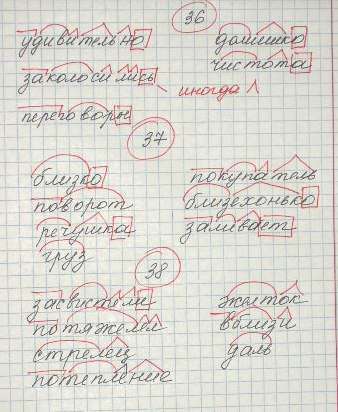 36
удивительно домишко
заколосились чистота
иногда
переговоры
37
близко покупатель
поворот близехонько
речушка заливает
груз
38
засвистели желток
потяжелел вблизи
стрелец даль
потепление